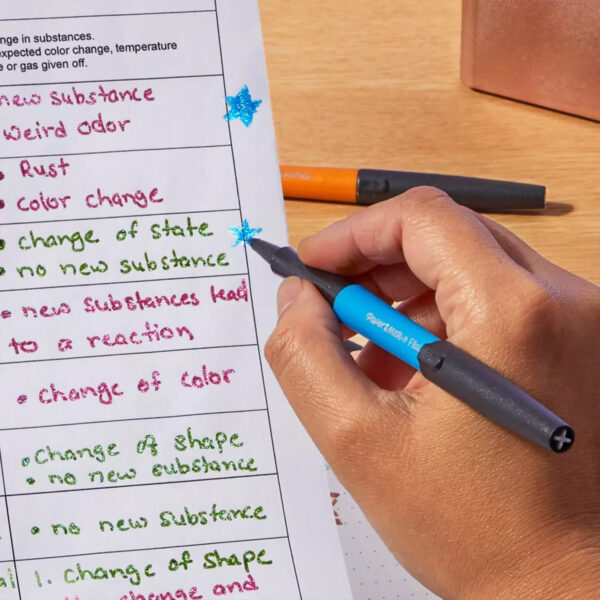 nge in substances.
expected color change, temperature
e or gas given off.
new substance
weird odor
• Rust
• color change
• change of state
• no new substance
• new substances lead
to a reaction
• change of color
• Change of shape
• no new substance
• no new substance
1. change of shape
change and
Paper Mate Flair